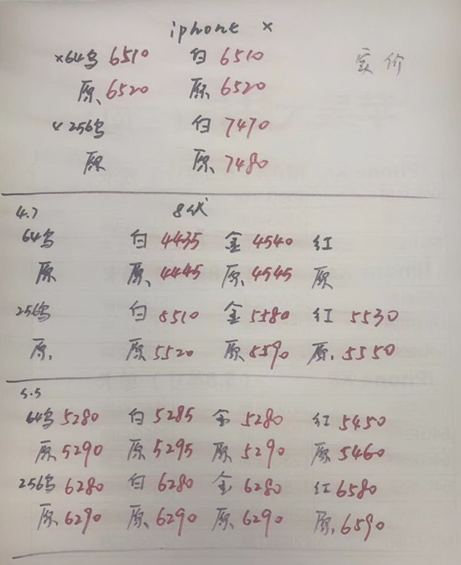 iphone X
X64乌 6510 白 6510 实价
原 6520 原 6520
X 256乌 白 7470
原 原 7480
4.7 8代
64乌 白 4435 金 4540 红
原 原 4445 原 4545 原
256乌 白 5510 金 5580 红 5530
原 原 5520 原 5590 原 5550
5.5
64乌 5280 白 5285 金 5280 红 5450
原 5290 原 5295 原 5290 原 5460
256乌 6280 白 6280 金 6280 红 6580
原 6290 原 6290 原 6290 原 6590